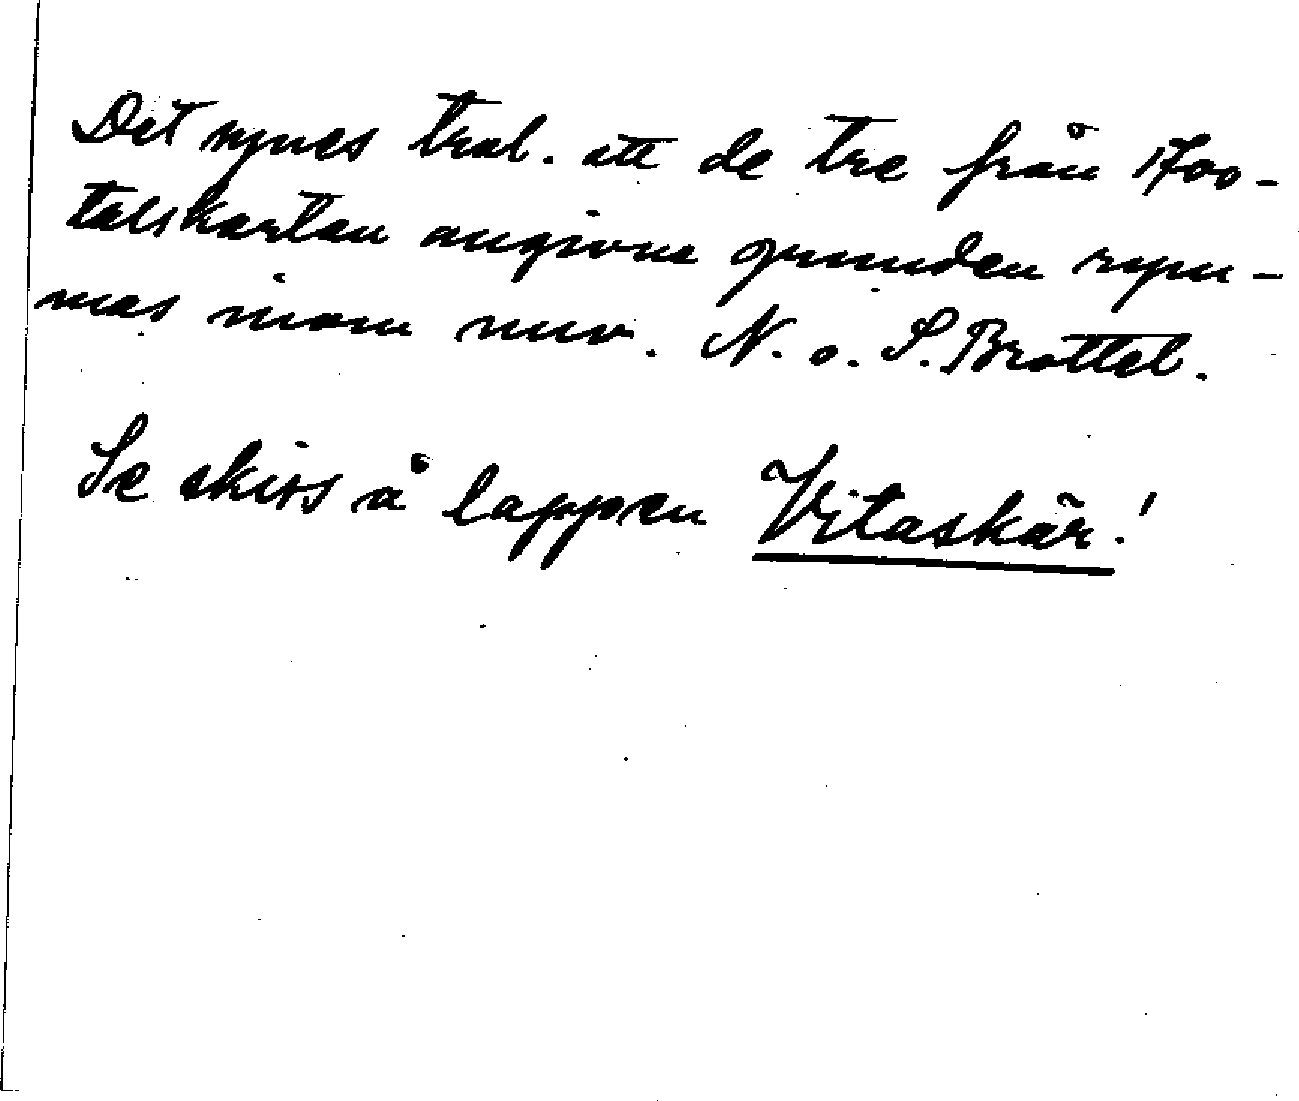 Det synes trol. att de tre från 1700-
talskartan angivna grunden rym-
mas inom nuv. N. o. S. Brottel.
Se skiss å lappen Vitaskär!